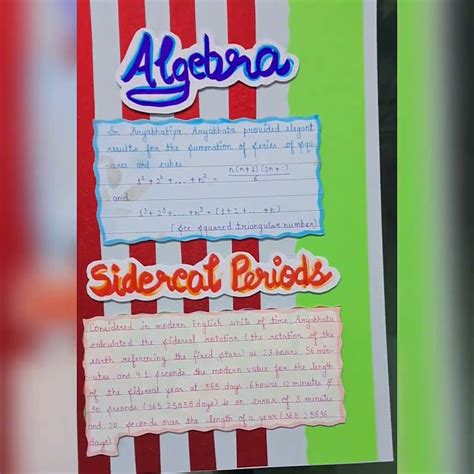 Algebra
In Aryabhatiya, Aryabhata provided elegant
results for the summation of series of squ-
ares and cubes
1² + 2² + ... + n² = n(n+1)(2n+1)/6
and
1³ + 2³ + ... + n³ = (1+2+...+n)
(see squared triangular number)
Sidereal Periods
Considered in modern English units of time, Aryabhata
calculated the sidereal rotation (the rotation of the
earth referencing the fixed stars) as 23 hours, 56 min-
utes and 4.1 seconds the modern value for the length
of the sidereal year at 365 days 6 hours, 12 minutes &
30 seconds (365.25858 days) is an error of 3 minutes
and 20 seconds over the length of a year (365.25636
days)